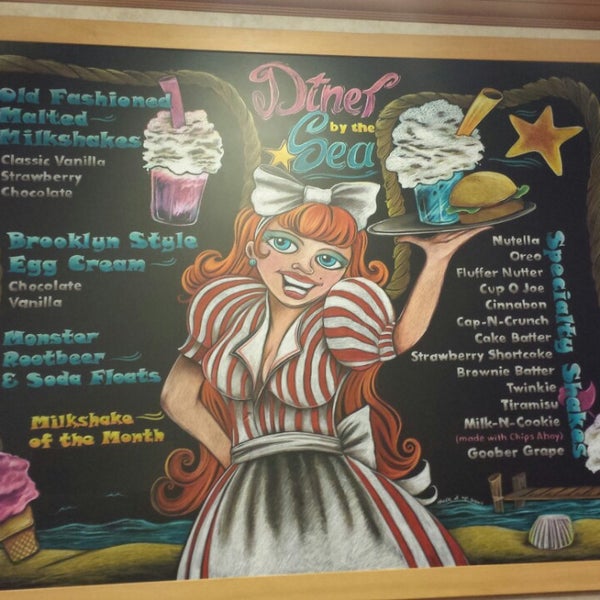 Diner
by the
Sea
Old Fashioned
Malted
Milkshakes
Classic Vanilla
Strawberry
Chocolate
Brooklyn Style
Egg Cream
Chocolate
Vanilla
Monster
Rootbeer
& Soda Floats
Milkshake
of the Month
Specialty Shakes
Nutella
Oreo
Fluffer Nutter
Cup O Joe
Cinnabon
Cap-N-Crunch
Cake Batter
Strawberry Shortcake
Brownie Batter
Twinkie
Tiramisu
Milk-N-Cookie
(made with Chips Ahoy)
Goober Grape